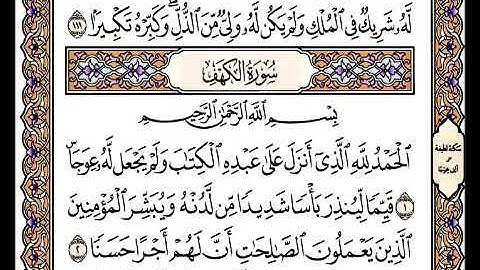 لَّهُۥ شَرِيكٌ فِى ٱلْمُلْكِ وَلَمْ يَكُن لَّهُۥ وَلِىٌّ مِّنَ ٱلذُّلِّ ۖ وَكَبِّرْهُ تَكْبِيرًۢا ١١١
سُورَةُ الكَهْفِ
بِسْمِ ٱللَّهِ ٱلرَّحْمَٰنِ ٱلرَّحِيمِ
ٱلْحَمْدُ لِلَّهِ ٱلَّذِىٓ أَنزَلَ عَلَىٰ عَبْدِهِ ٱلْكِتَٰبَ وَلَمْ يَجْعَل لَّهُۥ عِوَجَا ۜ
١ قَيِّمًا لِّيُنذِرَ بَأْسًا شَدِيدًا مِّن لَّدُنْهُ وَيُبَشِّرَ ٱلْمُؤْمِنِينَ
ٱلَّذِينَ يَعْمَلُونَ ٱلصَّٰلِحَٰتِ أَنَّ لَهُمْ أَجْرًا حَسَنًا ٢
سكتة لطيفة